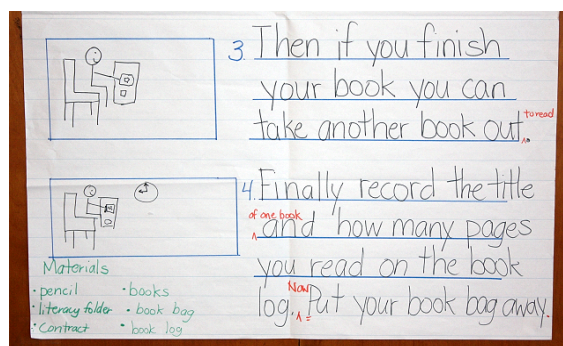 3. Then if you finish
your book you can
take another book out to read.
4. Finally record the title
of one book
and how many pages
you read on the book
log. Now Put your book bag away.
Materials
• pencil
• literacy folder
• Contract
• books
• book bag
• book log